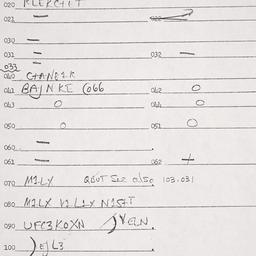 020
021 — 022
030
031 — 032 —
033
040 CHANEIR
041 BAJNKI C066 042 O
043 O 044 O
050 O 051 O
060 —
061 — 062 +
070 M1LY QOUT See also 103.031
080 M1LX V1L1X N15HT
090 UFC3KOXN JVELN
100 EJL3